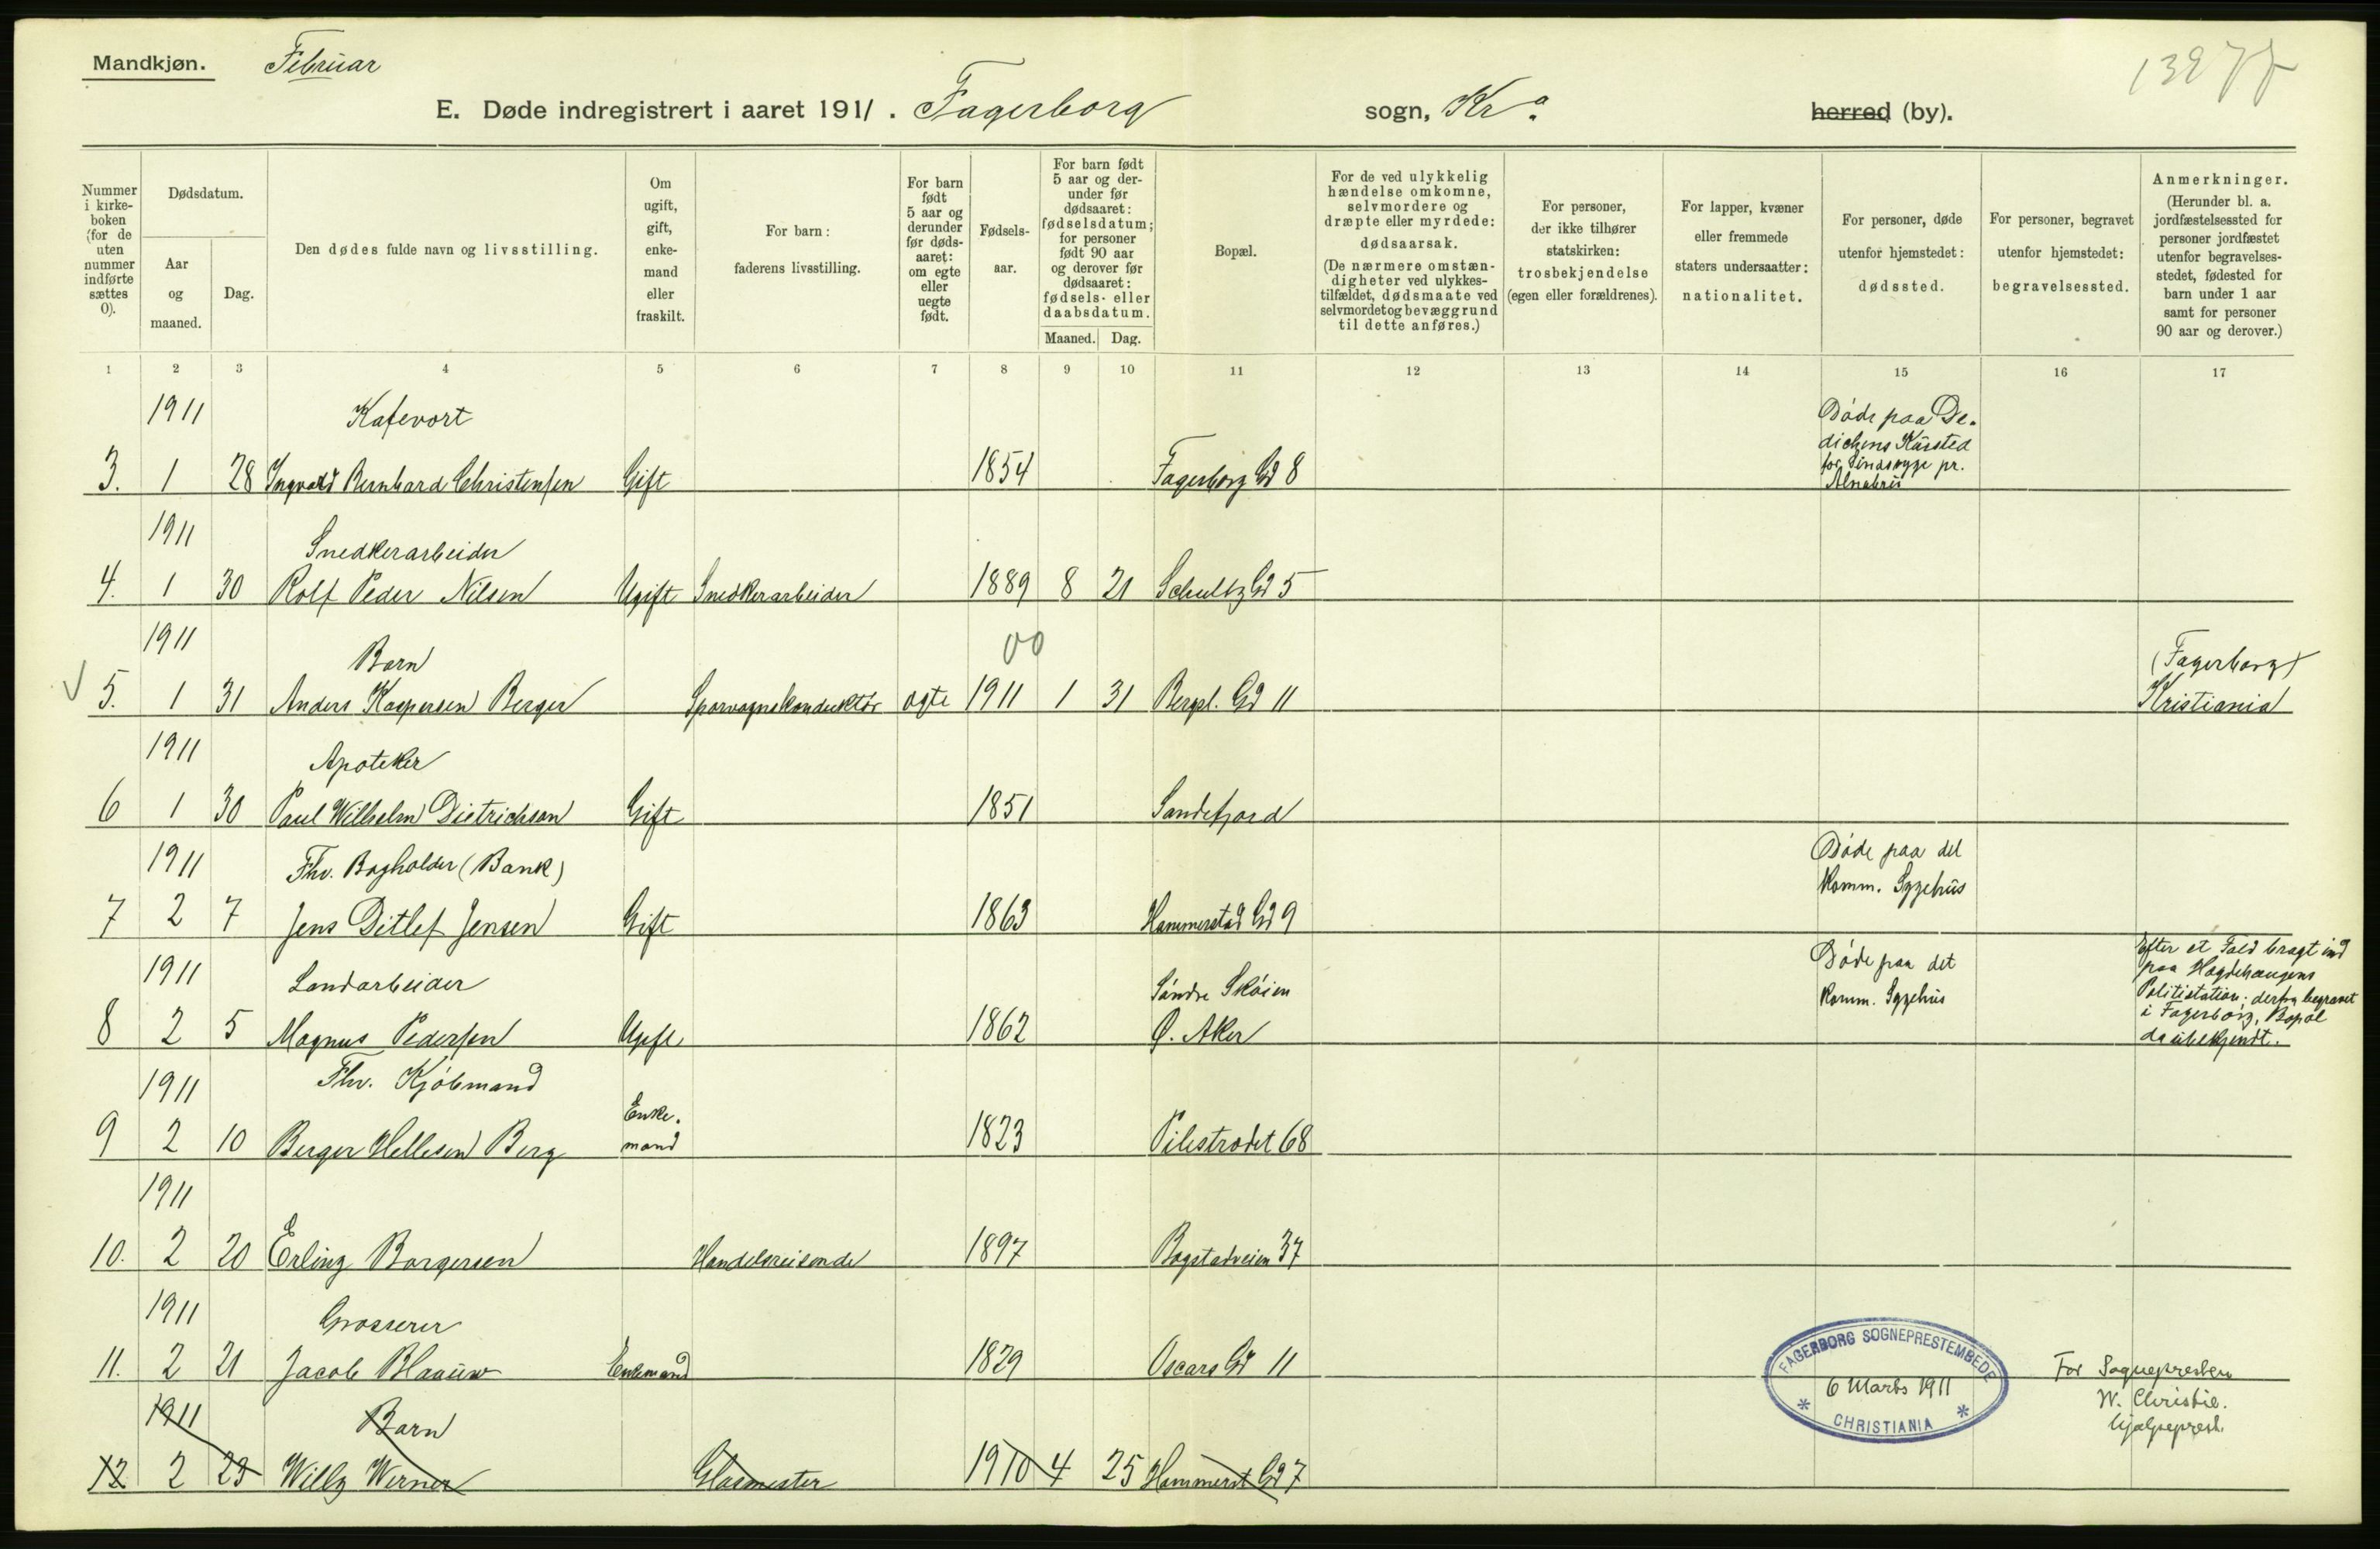 Mandkjøn. Februar
E. Døde indregistrert i aaret 1911. Fagerborg sogn, Kra. herred (by).
Nummer i kirkeboken (for de uten nummer indførte sættes 0).
Dødsdatum.
Aar og maaned.
Dag.
Den dødes fulde navn og livsstilling.
Om ugift, gift, enkemand eller fraskilt.
For barn: faderens livsstilling.
For barn født 5 aar og derunder før dødsaaret: om egte eller uegte født.
Fødselsaar.
For barn født 5 aar og derunder før dødsaaret: fødselsdatum; for personer født 90 aar og derover før dødsaaret: fødsels- eller daabsdatum.
Maaned. Dag.
Bopæl.
For de ved ulykkelig hændelse omkomne, selvmordere og dræpte eller myrdede: dødsaarsak. (De nærmere omstændigheter ved ulykkestilfældet, dødsmaate ved selvmordet og bevæggrund til dette anføres.)
For personer, der ikke tilhører statskirken: trosbekjendelse (egen eller forældrenes).
For lapper, kvæner eller fremmede staters undersaatter: nationalitet.
For personer, døde utenfor hjemstedet: dødssted.
For personer, begravet utenfor hjemstedet: begravelsessted.
Anmerkninger. (Herunder bl. a. jordfæstelsessted for personer jordfæstet utenfor begravelsesstedet, fødested for barn under 1 aar samt for personer 90 aar og derover.)
1 2 3 4 5 6 7 8 9 10 11 12 13 14 15 16 17
1911 Kafevert Døde paa Dedichens Kursted for Sindssyge pr. Alnabru
3. 1 28 Ingvald Bernhard Christensen Gift 1854 Fagerborg Gd 8
1911 Snedkerarbeider
4. 1 30 Rolf Peder Nilsen Ugift Snedkerarbeider 1889 8 21 Schultz Gd 5
1911 Barn 00 (Fagerborg)
5. 1 31 Anders Kaspersen Berger Sporvognskonduktør ægte 1911 1 31 Bergsl. Gd 11 Kristiania
1911 Apoteker
6 1 30 Paul Wilhelm Dietrichson Gift 1851 Sandefjord
1911 Fhv. Bogholder (Bank) Døde paa det Komm. Sygehus
7 2 7 Jens Ditlef Jensen Gift 1863 Hammerstad Gd 9
1911 Landarbeider Søndre Skøien Døde paa det Komm. Sygehus
8 2 5 Magnus Pedersen Ugift 1862 Ø. Aker
Efter et Fald bragt ind
paa Hægdehaugens
Politistation; derfra begravet
i Fagerborg, Bopæl
da ubekjendt.
1911 Fhv. Kjøbmand
9 2 10 Berger Hellesen Berg Enkemand 1823 Pilestrædet 68
1911
10. 2 20 Erling Borgersen Handelsreisende 1897 Bogstadveien 37
1911 Grosserer
11. 2 21 Jacob Blaauw Enkemand 1829 Oscars Gd 11
FAGERBORG SOGNEPRESTEMBEDE
6 Marts 1911
* CHRISTIANIA *
For Sognepresten
W. Christie.
hjælpeprest.
1911 Barn
12 2 23 Willy Werner Glasmester 1910 4 25 Hammerst Gd 7